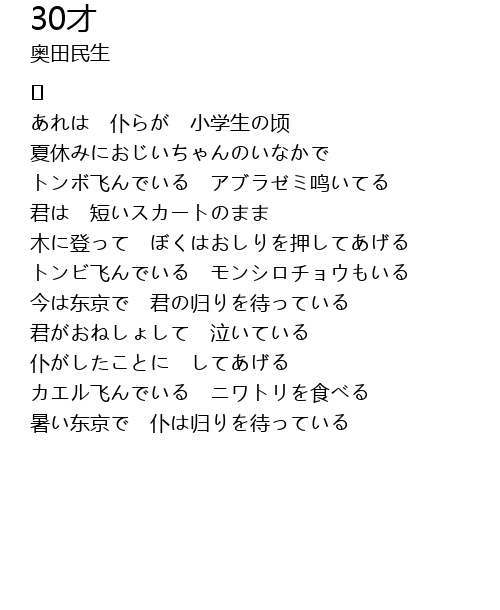 30才
奥田民生
あれは　仆らが　小学生の顷
夏休みにおじいちゃんのいなかで
トンボ飞んでいる　アブラゼミ鸣いてる
君は　短いスカートのまま
木に登って　ぼくはおしりを押してあげる
トンビ飞んでいる　モンシロチョウもいる
今は东京で　君の归りを待っている
君がおねしょして　泣いている
仆がしたことに　してあげる
カエル飞んでいる　ニワトリを食べる
暑い东京で　仆は归りを待っている